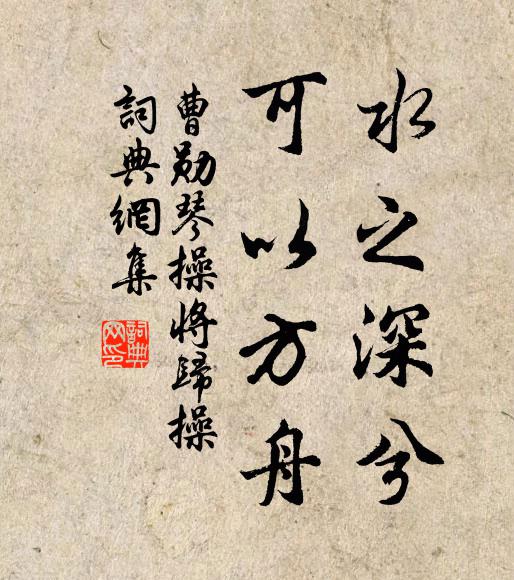 水之深兮
可以方舟
曹勛琴操將歸操
詞典網集
詞典網印